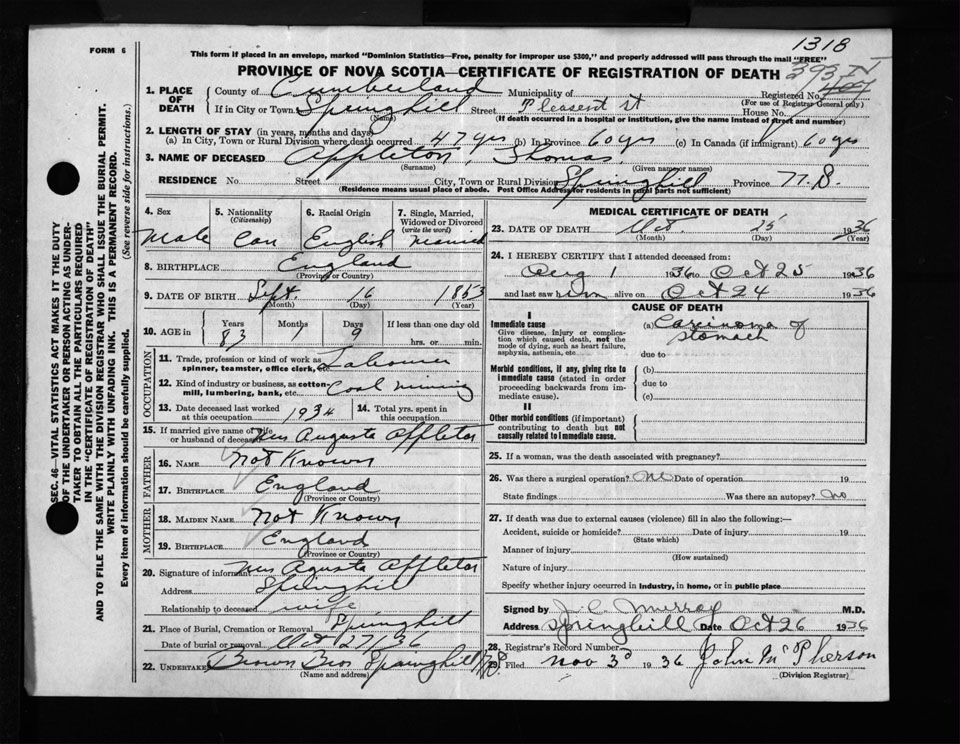 1318
FORM 6
This form if placed in an envelope, marked "Dominion Statistics—Free, penalty for improper use $300," and properly addressed will pass through the mail "FREE"
PROVINCE OF NOVA SCOTIA—CERTIFICATE OF REGISTRATION OF DEATH
1. PLACE OF DEATH County of Cumberland Municipality of Registered No.
(For use of Registrar General only)
If in City or Town Springhill Street Pleasent St House No.
(Name) (If death occurred in a hospital or institution, give the name instead of street and number)
2. LENGTH OF STAY (in years, months and days)
(a) In City, Town or Rural Division where death occurred 47 yrs (b) In Province 60 yrs (c) In Canada (if immigrant) 60 yrs
3. NAME OF DECEASED Appleton, Thomas
(Surname) (Given name or names)
RESIDENCE No. Street City, Town or Rural Division Springhill Province N.S.
(Residence means usual place of abode. Post Office Address for residents in rural parts not sufficient)
4. Sex Male
5. Nationality (Citizenship) Can
6. Racial Origin English
7. Single, Married, Widowed or Divorced (write the word) Married
8. BIRTHPLACE England
(Province or Country)
9. DATE OF BIRTH Sept. 16 1853
(Month) (Day) (Year)
10. AGE in Years 83 Months 1 Days 9 If less than one day old
hrs. or min.
OCCUPATION
11. Trade, profession or kind of work as spinner, teamster, office clerk, etc. Labourer
12. Kind of industry or business, as cotton-mill, lumbering, bank, etc. Coal mining
13. Date deceased last worked at this occupation 1934
14. Total yrs. spent in this occupation
15. If married give name of wife or husband of deceased Mrs Augusta Appleton
FATHER
16. NAME Not Known
17. BIRTHPLACE England
(Province or Country)
MOTHER
18. MAIDEN NAME Not Known
19. BIRTHPLACE England
(Province or Country)
20. Signature of informant Mrs Agusta Appleton
Address Springhill
Relationship to deceased wife
21. Place of Burial, Cremation or Removal Springhill
Date of burial or removal Oct 27/36
22. UNDERTAKER Brown Bros Springhill N.S.
(Name and address)
MEDICAL CERTIFICATE OF DEATH
23. DATE OF DEATH Oct. 25 1936
(Month) (Day) (Year)
24. I HEREBY CERTIFY that I attended deceased from:
Aug 1 1936 to Oct 25 1936
and last saw him alive on Oct 24 1936
CAUSE OF DEATH
I
Immediate cause
Give disease, injury or complication which caused death, not the mode of dying, such as heart failure, asphyxia, asthenia, etc.
(a) Carcinoma of stomach
due to
Morbid conditions, if any, giving rise to immediate cause (stated in order proceeding backwards from immediate cause).
(b)
due to
(c)
II
Other morbid conditions (if important) contributing to death but not causally related to immediate cause.
25. If a woman, was the death associated with pregnancy?
26. Was there a surgical operation? No Date of operation 19
State findings Was there an autopsy? No
27. If death was due to external causes (violence) fill in also the following:—
Accident, suicide or homicide? Date of injury 19
(State which)
Manner of injury
(How sustained)
Nature of injury
Specify whether injury occurred in industry, in home, or in public place
Signed by J. C. Murray M.D.
Address Springhill Date Oct 26 1936
28. Registrar's Record Number
29. Filed Nov 3d 1936 John McPherson
(Division Registrar)
SEC. 46—VITAL STATISTICS ACT MAKES IT THE DUTY
OF THE UNDERTAKER OR PERSON ACTING AS UNDER-
TAKER TO OBTAIN ALL THE PARTICULARS REQUIRED
IN THE "CERTIFICATE OF REGISTRATION OF DEATH"
AND TO FILE THE SAME WITH THE DIVISION REGISTRAR WHO SHALL ISSUE THE BURIAL PERMIT.
WRITE PLAINLY WITH UNFADING INK. THIS IS A PERMANENT RECORD.
Every item of information should be carefully supplied. (See reverse side for instructions.)